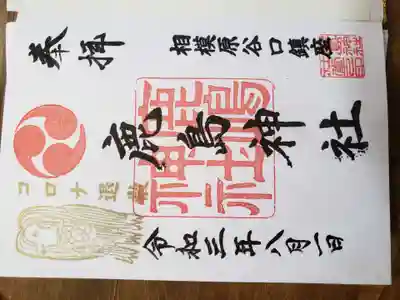 奉拝
相模原谷口鎮座
鹿島神社
コロナ退散
令和三年八月一日